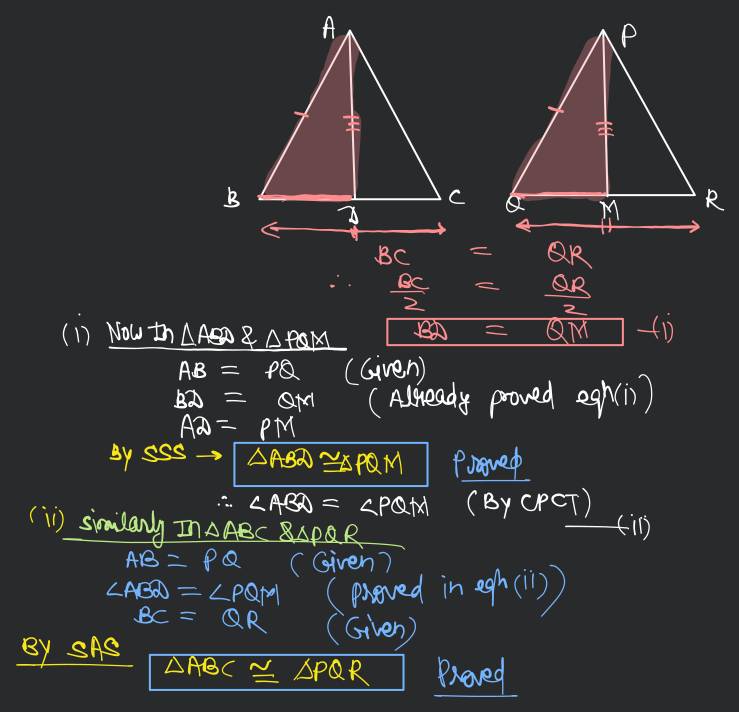 A
P
B
D
C
Q
M
R
BC = QR
∴ BC/2 = QR/2
BD = QM —(i)
(i) Now In △ABD & △PQM
AB = PQ (Given)
BD = QM (Already proved eqn(i))
AD = PM
By SSS → △ABD ≅ △PQM Proved
∴ ∠ABD = ∠PQM (By CPCT) —(ii)
(ii) similarly In △ABC & △PQR
AB = PQ (Given)
∠ABD = ∠PQM (proved in eqn(ii))
BC = QR (Given)
By SAS
△ABC ≅ △PQR Proved